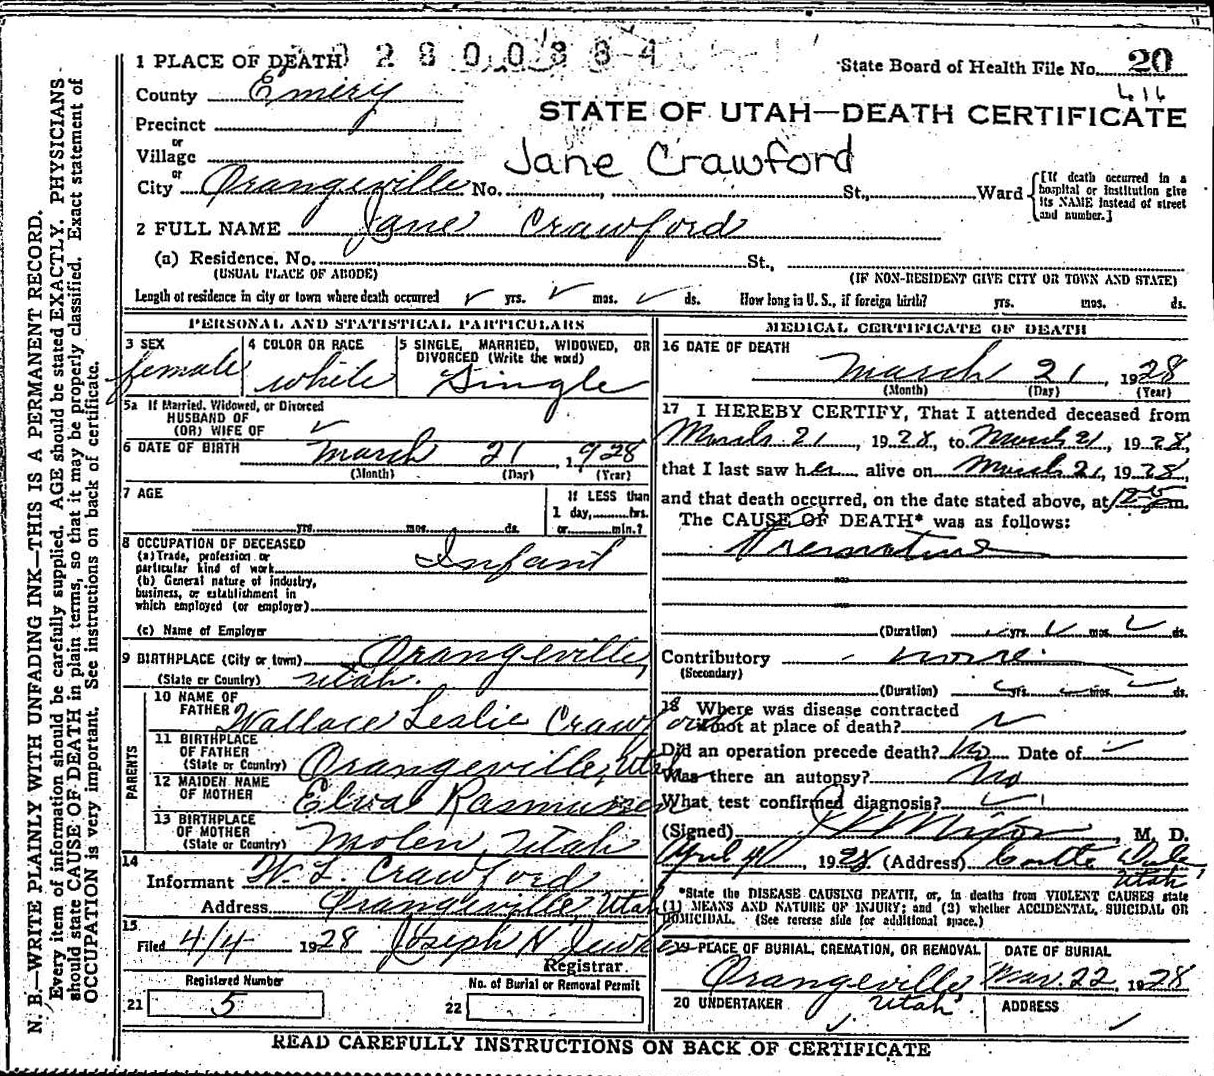 N. B.—WRITE PLAINLY WITH UNFADING INK—THIS IS A PERMANENT RECORD.
Every item of information should be carefully supplied. AGE should be stated EXACTLY. PHYSICIANS
should state CAUSE OF DEATH in plain terms, so that it may be properly classified. Exact statement of
OCCUPATION is very important. See instructions on back of certificate.
1 PLACE OF DEATH
State Board of Health File No. 20
416
County Emery
STATE OF UTAH—DEATH CERTIFICATE
Precinct
or
Village
Jane Crawford
or
City Orangeville No. , St., Ward
[If death occurred in a hospital or institution give its NAME instead of street and number.]
2 FULL NAME Jane Crawford
(a) Residence. No. St.,
(USUAL PLACE OF ABODE) (IF NON-RESIDENT GIVE CITY OR TOWN AND STATE)
Length of residence in city or town where death occurred yrs. mos. ds. How long in U. S., if foreign birth? yrs. mos. ds.
PERSONAL AND STATISTICAL PARTICULARS
3 SEX female
4 COLOR OR RACE white
5 SINGLE, MARRIED, WIDOWED, OR DIVORCED (Write the word) Single
5a If Married, Widowed, or Divorced
HUSBAND OF
(OR) WIFE OF
6 DATE OF BIRTH March 21, 1928
(Month) (Day) (Year)
7 AGE
yrs. mos. ds.
If LESS than
1 day, hrs.
or min.?
8 OCCUPATION OF DECEASED
(a) Trade, profession or
particular kind of work Infant
(b) General nature of industry,
business, or establishment in
which employed (or employer)
(c) Name of Employer
9 BIRTHPLACE (City or town) Orangeville,
(State or Country) Utah.
PARENTS
10 NAME OF
FATHER Wallace Leslie Crawford
11 BIRTHPLACE
OF FATHER
(State or Country) Orangeville, Utah
12 MAIDEN NAME
OF MOTHER Elva Rasmussen
13 BIRTHPLACE
OF MOTHER
(State or Country) Molen, Utah
14
Informant W. L. Crawford
Address Orangeville, Utah
15
Filed 4/4 1928 Joseph H Jewkes
Registrar.
Registered Number
21 5
No. of Burial or Removal Permit
22
MEDICAL CERTIFICATE OF DEATH
16 DATE OF DEATH
March 21, 1928
(Month) (Day) (Year)
17 I HEREBY CERTIFY, That I attended deceased from
March 21, 1928, to March 21, 1928,
that I last saw her alive on March 21, 1928,
and that death occurred, on the date stated above, at m.
The CAUSE OF DEATH* was as follows:
Premature
(Duration) yrs. mos. ds.
Contributory none.
(Secondary)
(Duration) yrs. mos. ds.
18 Where was disease contracted
if not at place of death?
Did an operation precede death? no Date of
Was there an autopsy? No
What test confirmed diagnosis?
(Signed) , M. D.
April 4, 1928 (Address) Castle Dale
Utah
*State the DISEASE CAUSING DEATH, or, in deaths from VIOLENT CAUSES state
(1) MEANS AND NATURE OF INJURY; and (2) whether ACCIDENTAL, SUICIDAL OR
HOMICIDAL. (See reverse side for additional space.)
19 PLACE OF BURIAL, CREMATION, OR REMOVAL
Orangeville
Utah
DATE OF BURIAL
Mar. 22, 1928
20 UNDERTAKER
ADDRESS
READ CAREFULLY INSTRUCTIONS ON BACK OF CERTIFICATE